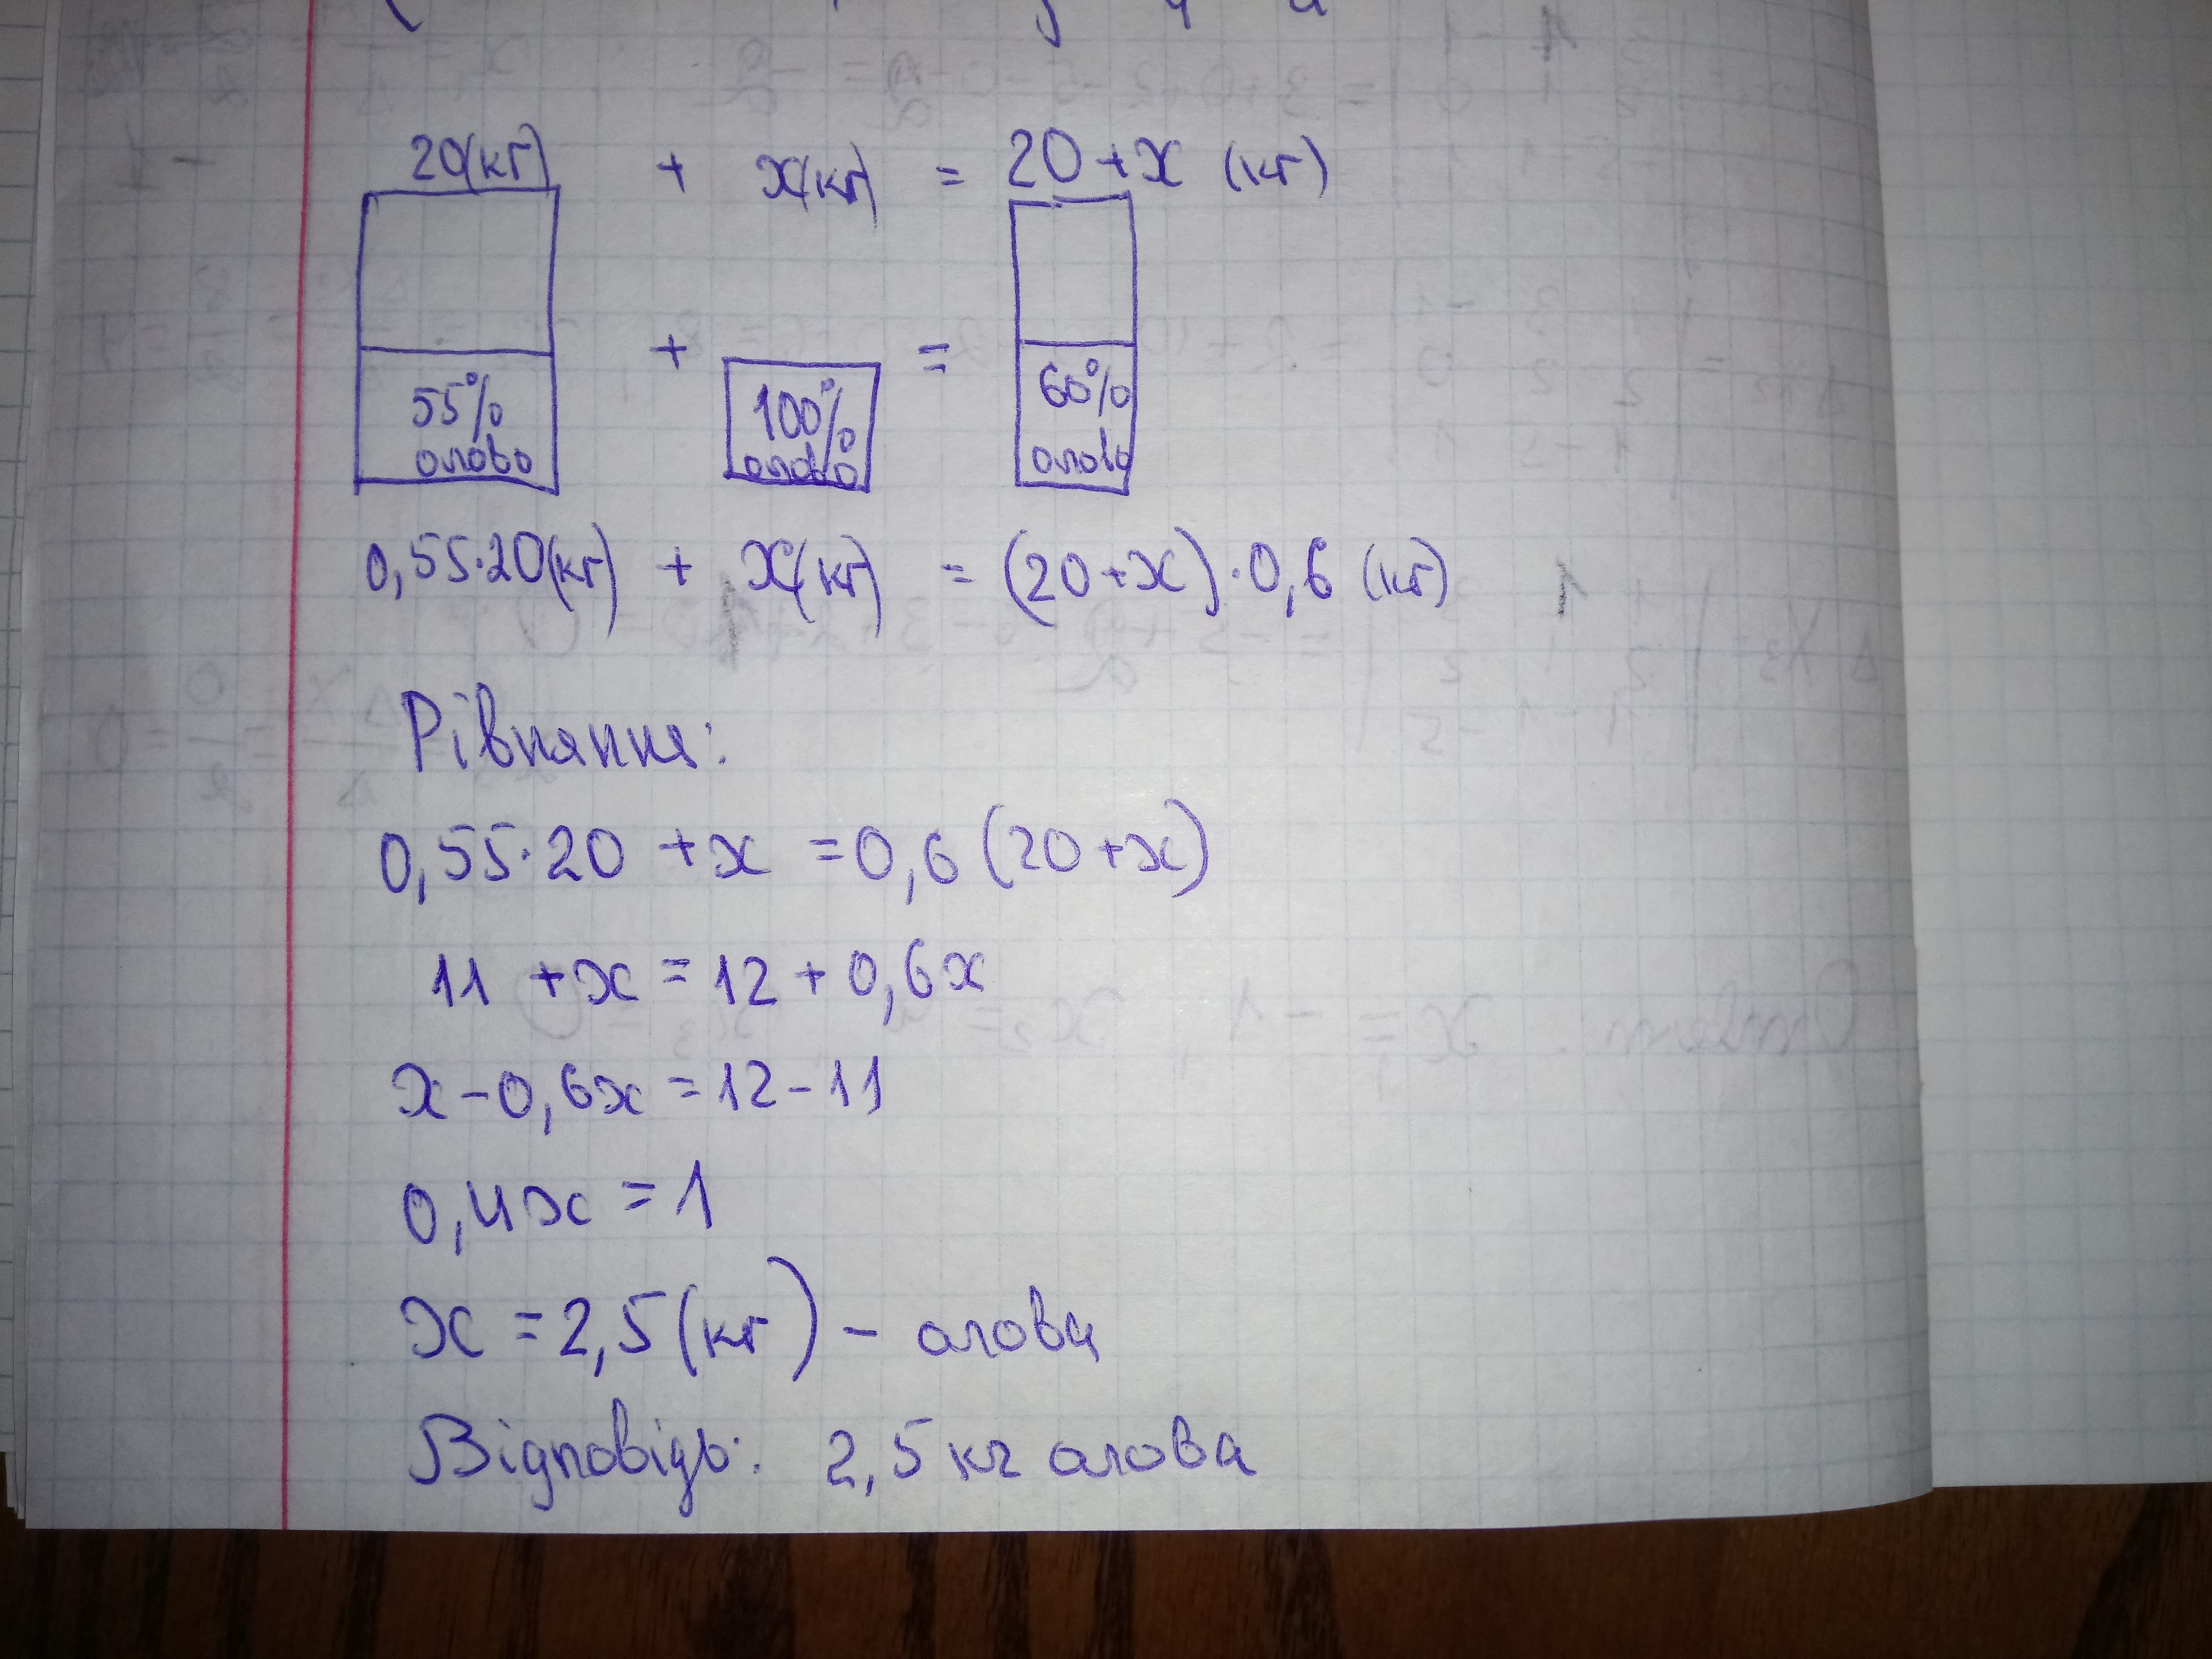 20(кг) + x(кг) = 20+x (кг)
+ =
55% 100% 60%
олово олово олово
0,55·20(кг) + x(кг) = (20+x)·0,6 (кг)
Рівняння:
0,55·20 +x =0,6(20+x)
11 +x = 12 + 0,6x
x-0,6x =12-11
0,4x = 1
x = 2,5(кг) - олова
Відповідь: 2,5 кг олова